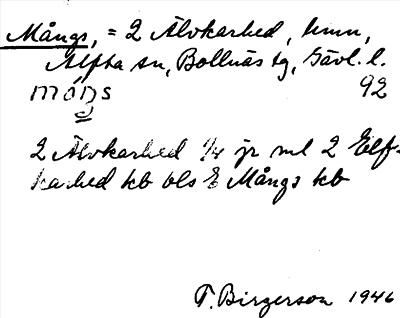 Mångs, = 2 Älvkarhed, hmn,
Alfta sn, Bollnäs tg, Gävl. l.
móŋs 92
2 Älvkarhed 1/4 jr ml 2 Elf-
karhed kb bls E Mångs kb
T. Birgerson 1946